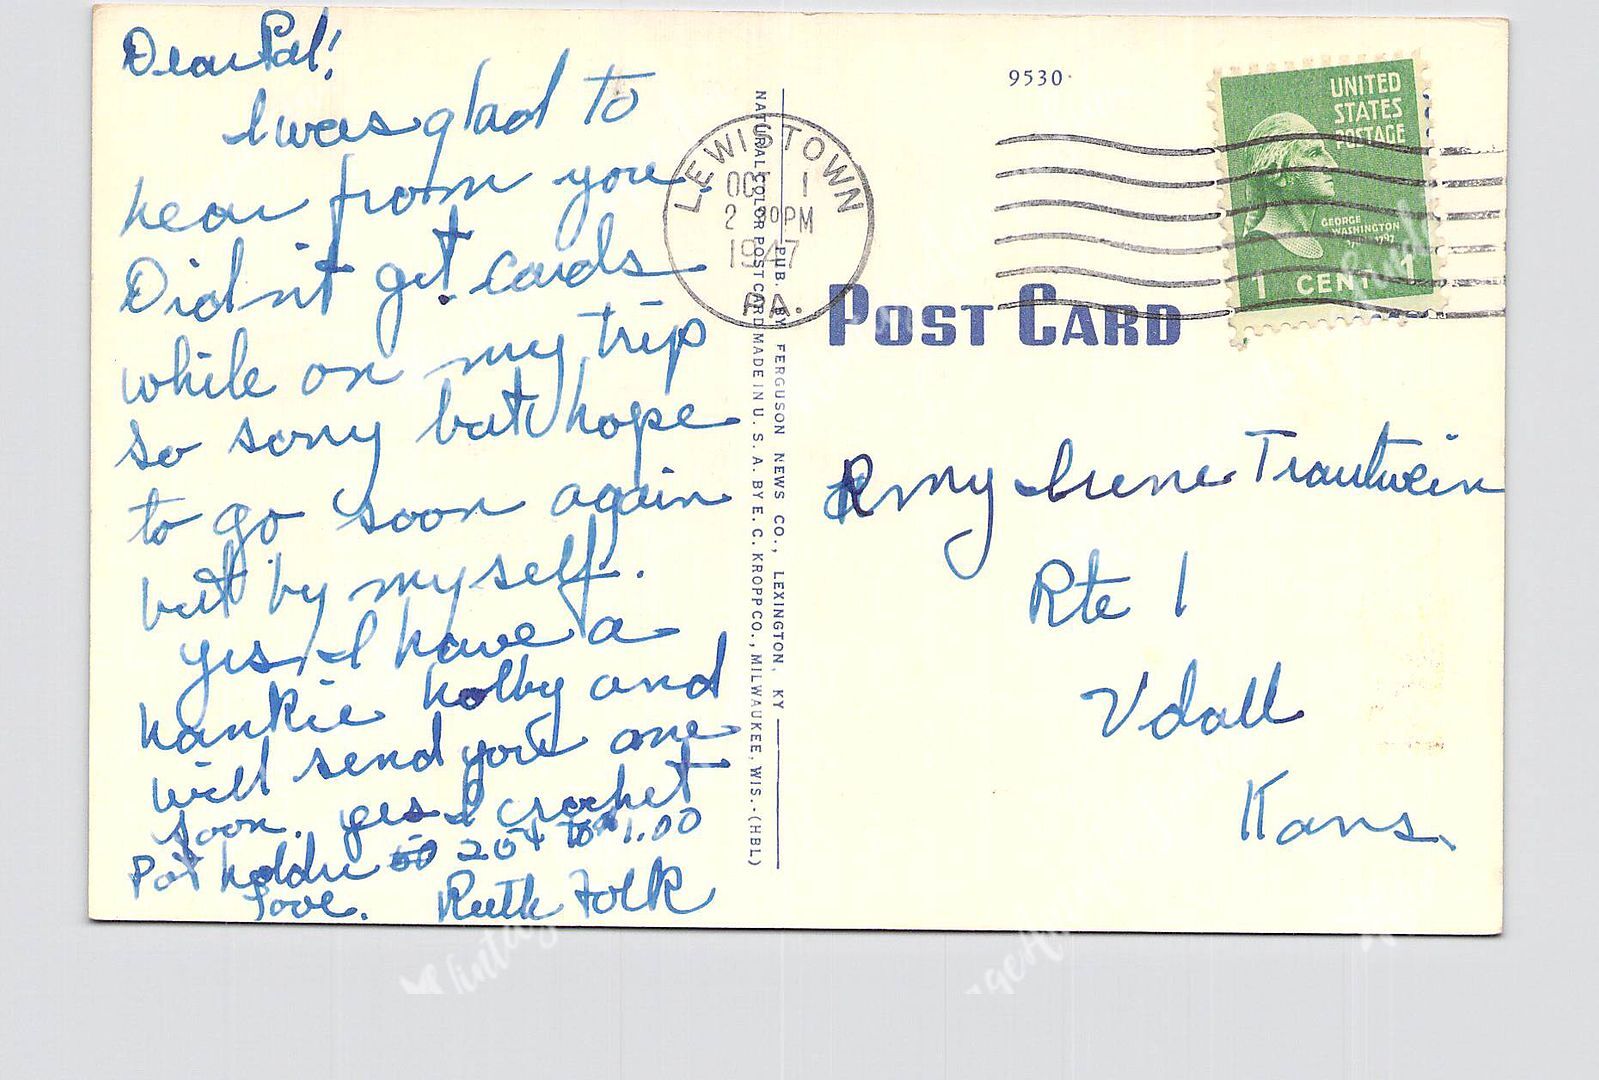 Dear Pal!
I was glad to
hear from you.
Didn't get cards
while on my trip
so sorry but hope
to go soon again
but by myself.
yes, I have a
hankie hobby and
will send you one
soon. yes I crochet
Pot holder 20¢ to $1.00
Love. Ruth Folk
NATURAL COLOR POST CARD MADE IN U. S. A. BY E. C. KROPP CO., MILWAUKEE, WIS.-(HBL)
PUB. BY FERGUSON NEWS CO., LEXINGTON, KY
LEWISTOWN
OCT 1
2 PM
1947
PA.
9530
UNITED
STATES
POSTAGE
GEORGE
WASHINGTON
1 CENT 1
POST CARD
Irene Trautwein
Rte 1
Udall
Kans.